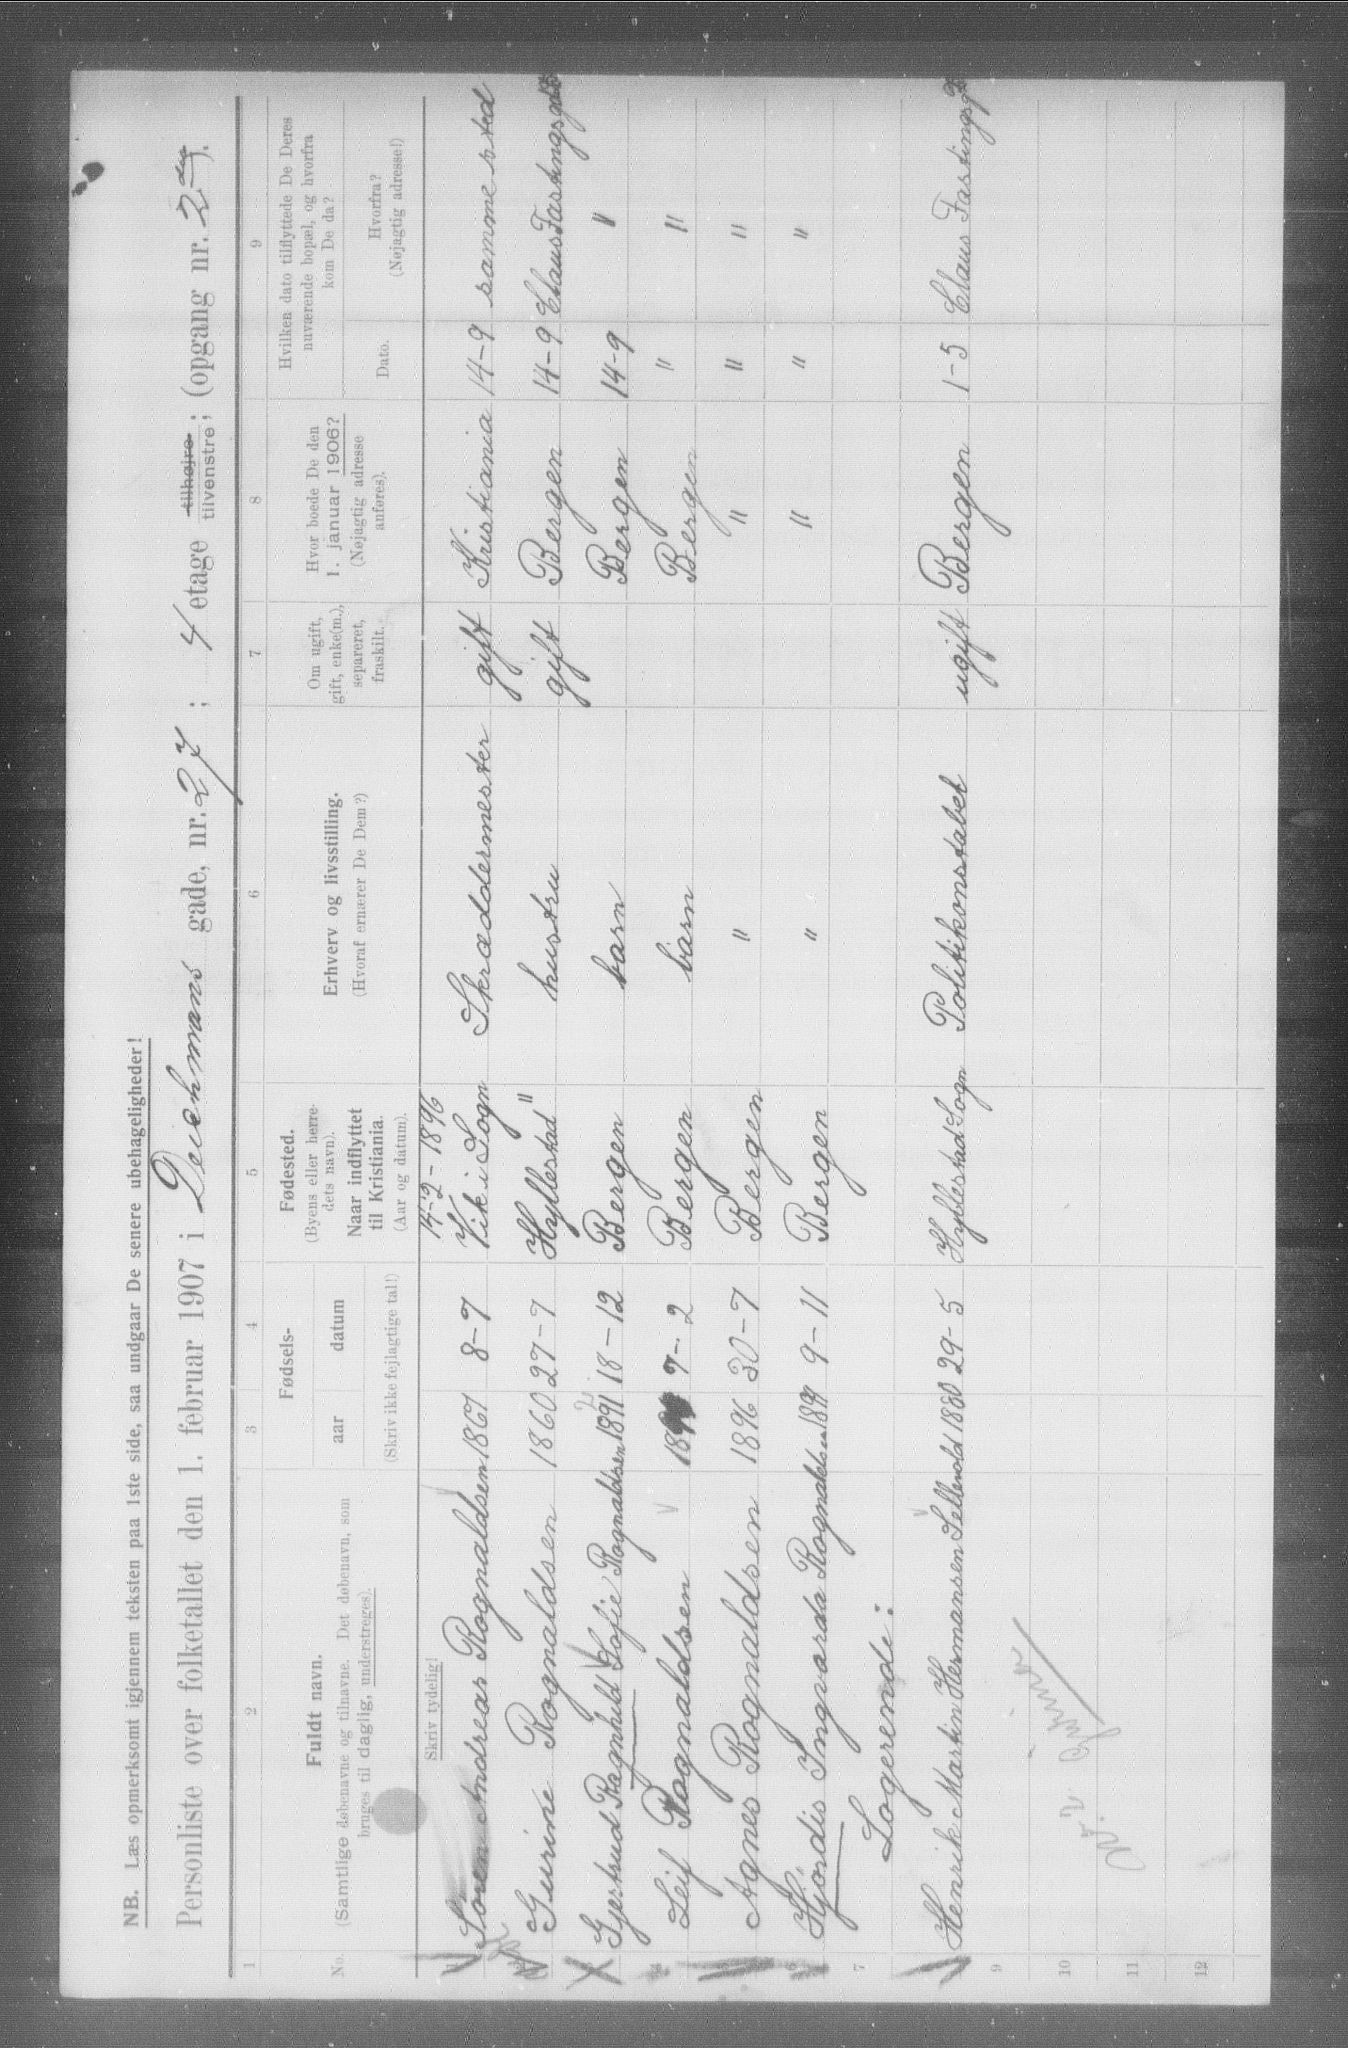 NB. Læs opmerksomt igjennem teksten paa 1ste side, saa undgaar De senere ubehageligheder!
Personliste over folketallet den 1. februar 1907 i Deichmans gade, nr. 27; 4 etage tilhøjre tilvenstre; (opgang nr. 2den).
1 2 3 4 5 6 7 8 9
No.
Fuldt navn.
(Samtlige døbenavne og tilnavne. Det døbenavn, som
bruges til daglig, understreges).
Fødsels-
aar datum
(Skriv ikke fejlagtige tal!)
Fødested.
(Byens eller herre-
dets navn).
Naar indflyttet
til Kristiania.
(Aar og datum).
Erhverv og livsstilling.
(Hvoraf ernærer De Dem?)
Om ugift,
gift, enke(m.),
separeret,
fraskilt.
Hvor boede De den
1. januar 1906?
(Nøjagtig adresse
anføres).
Hvilken dato tilflyttede De Deres
nuværende bopæl, og hvorfra
kom De da?
Dato.
Hvorfra?
(Nøjagtig adresse!)
Skriv tydelig!
14-2-1896
Søren Andreas Rognaldsen 1867 8-7 Vik i Sogn Skræddermester gift Kristiania 14-9 samme sted
Gurine Rognaldsen 1860 27-7 Hyllestad " hustru gift Bergen 14-9 Claus Fastingsgade
Gjertrud Ragnhild Sofie Rognaldsen 1891 18-12 Bergen barn Bergen 14-9 "
Leif Rognaldsen 7-2 Bergen barn Bergen " "
Agnes Rognaldsen 1896 30-7 Bergen " " " "
6 Hjørdis Ingvarda Rognaldsen 1899 9-11 Bergen " " " "
7 Logerende:
Henrik Martin Hermansen Sellevold 1880 29-5 Hyllestad Sogn Politikonstabel ugift Bergen 1-5 Claus Fastingsg
9
10
11
12